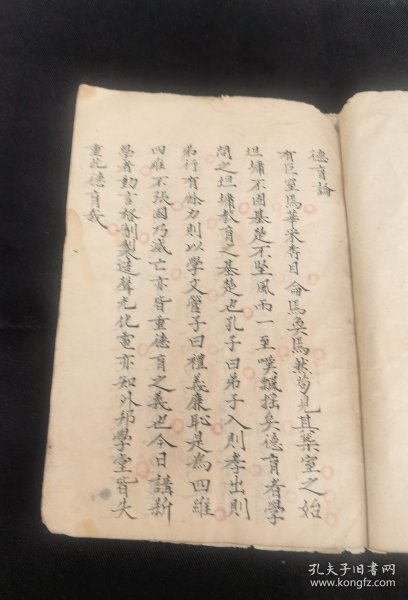 德育論
有巨室焉華采奪目侖焉奐焉然苟見其築室之始
垣墉不固基楚不坚風雨一至嘆飄摇矣德育者學
問之垣墉教育之基楚也孔子曰弟子入則孝出則
弟行有餘力則以學文管子曰禮義廉恥是為四維
四維不張國乃滅亡亦皆重德育之義也今日講新
學者動言格制製造聲光化電亦知外邦學堂皆先
重此德育哉
孔夫子旧书网
www.kongfz.com